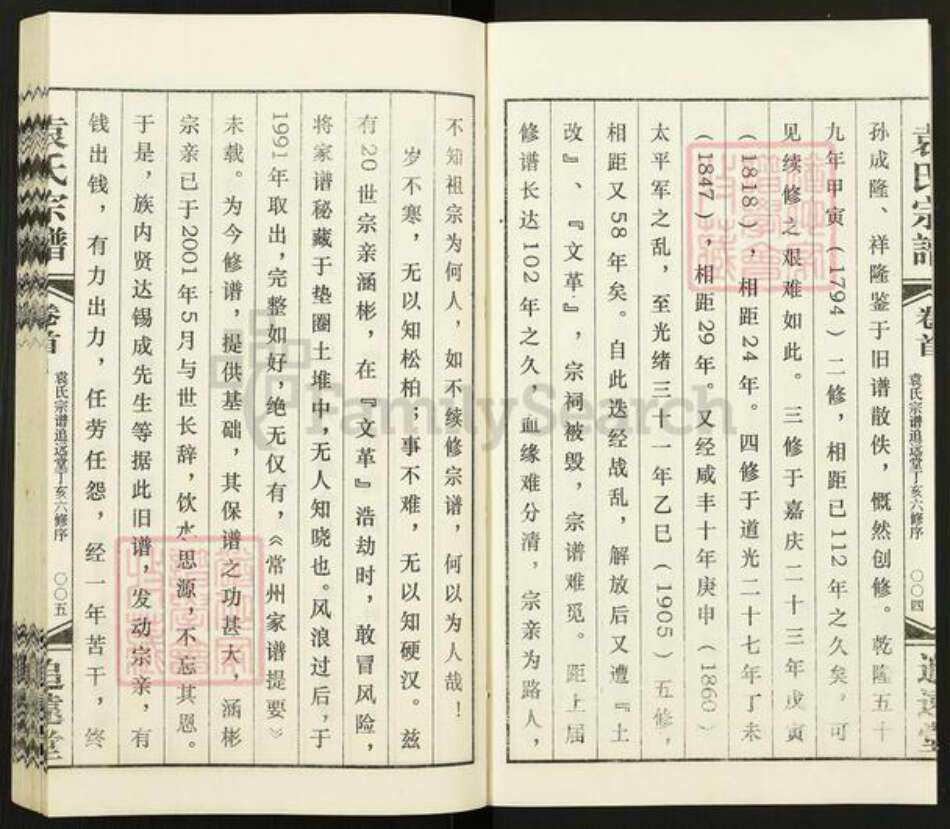 袁氏宗譜
卷首
袁氏宗谱追远堂丁亥六修序
〇〇四
追遠堂
孙成隆、祥隆鉴于旧谱散佚，慨然创修。乾隆五十
九年甲寅（1794）二修，相距已112年之久矣，可
见续修之艰难如此。三修于嘉庆二十三年戊寅
（1818），相距24年。四修于道光二十七年丁未
（1847），相距29年。又经咸丰十年庚申（1860）
太平军之乱，至光绪三十一年乙巳（1905）五修，
相距又58年矣。自此迭经战乱，解放后又遭『土
改』、『文革』，宗祠被毁，宗谱难觅。距上届
修谱长达102年之久，血缘难分清，宗亲为路人，
不知祖宗为何人，如不续修宗谱，何以为人哉！
岁不寒，无以知松柏；事不难，无以知硬汉。兹
有20世宗亲涵彬，在『文革』浩劫时，敢冒风险，
将家谱秘藏于垫圈土堆中，无人知晓也。风浪过后，于
1991年取出，完整如好，绝无仅有，《常州家谱提要》
未载。为今修谱，提供基础，其保谱之功甚大，涵彬
宗亲已于2001年5月与世长辞，饮水思源，不忘其恩。
于是，族内贤达锡成先生等据此旧谱，发动宗亲，有
钱出钱，有力出力，任劳任怨，经一年苦干，终
袁氏宗譜
卷首
袁氏宗谱追远堂丁亥六修序
〇〇五
追遠堂
FamilySearch